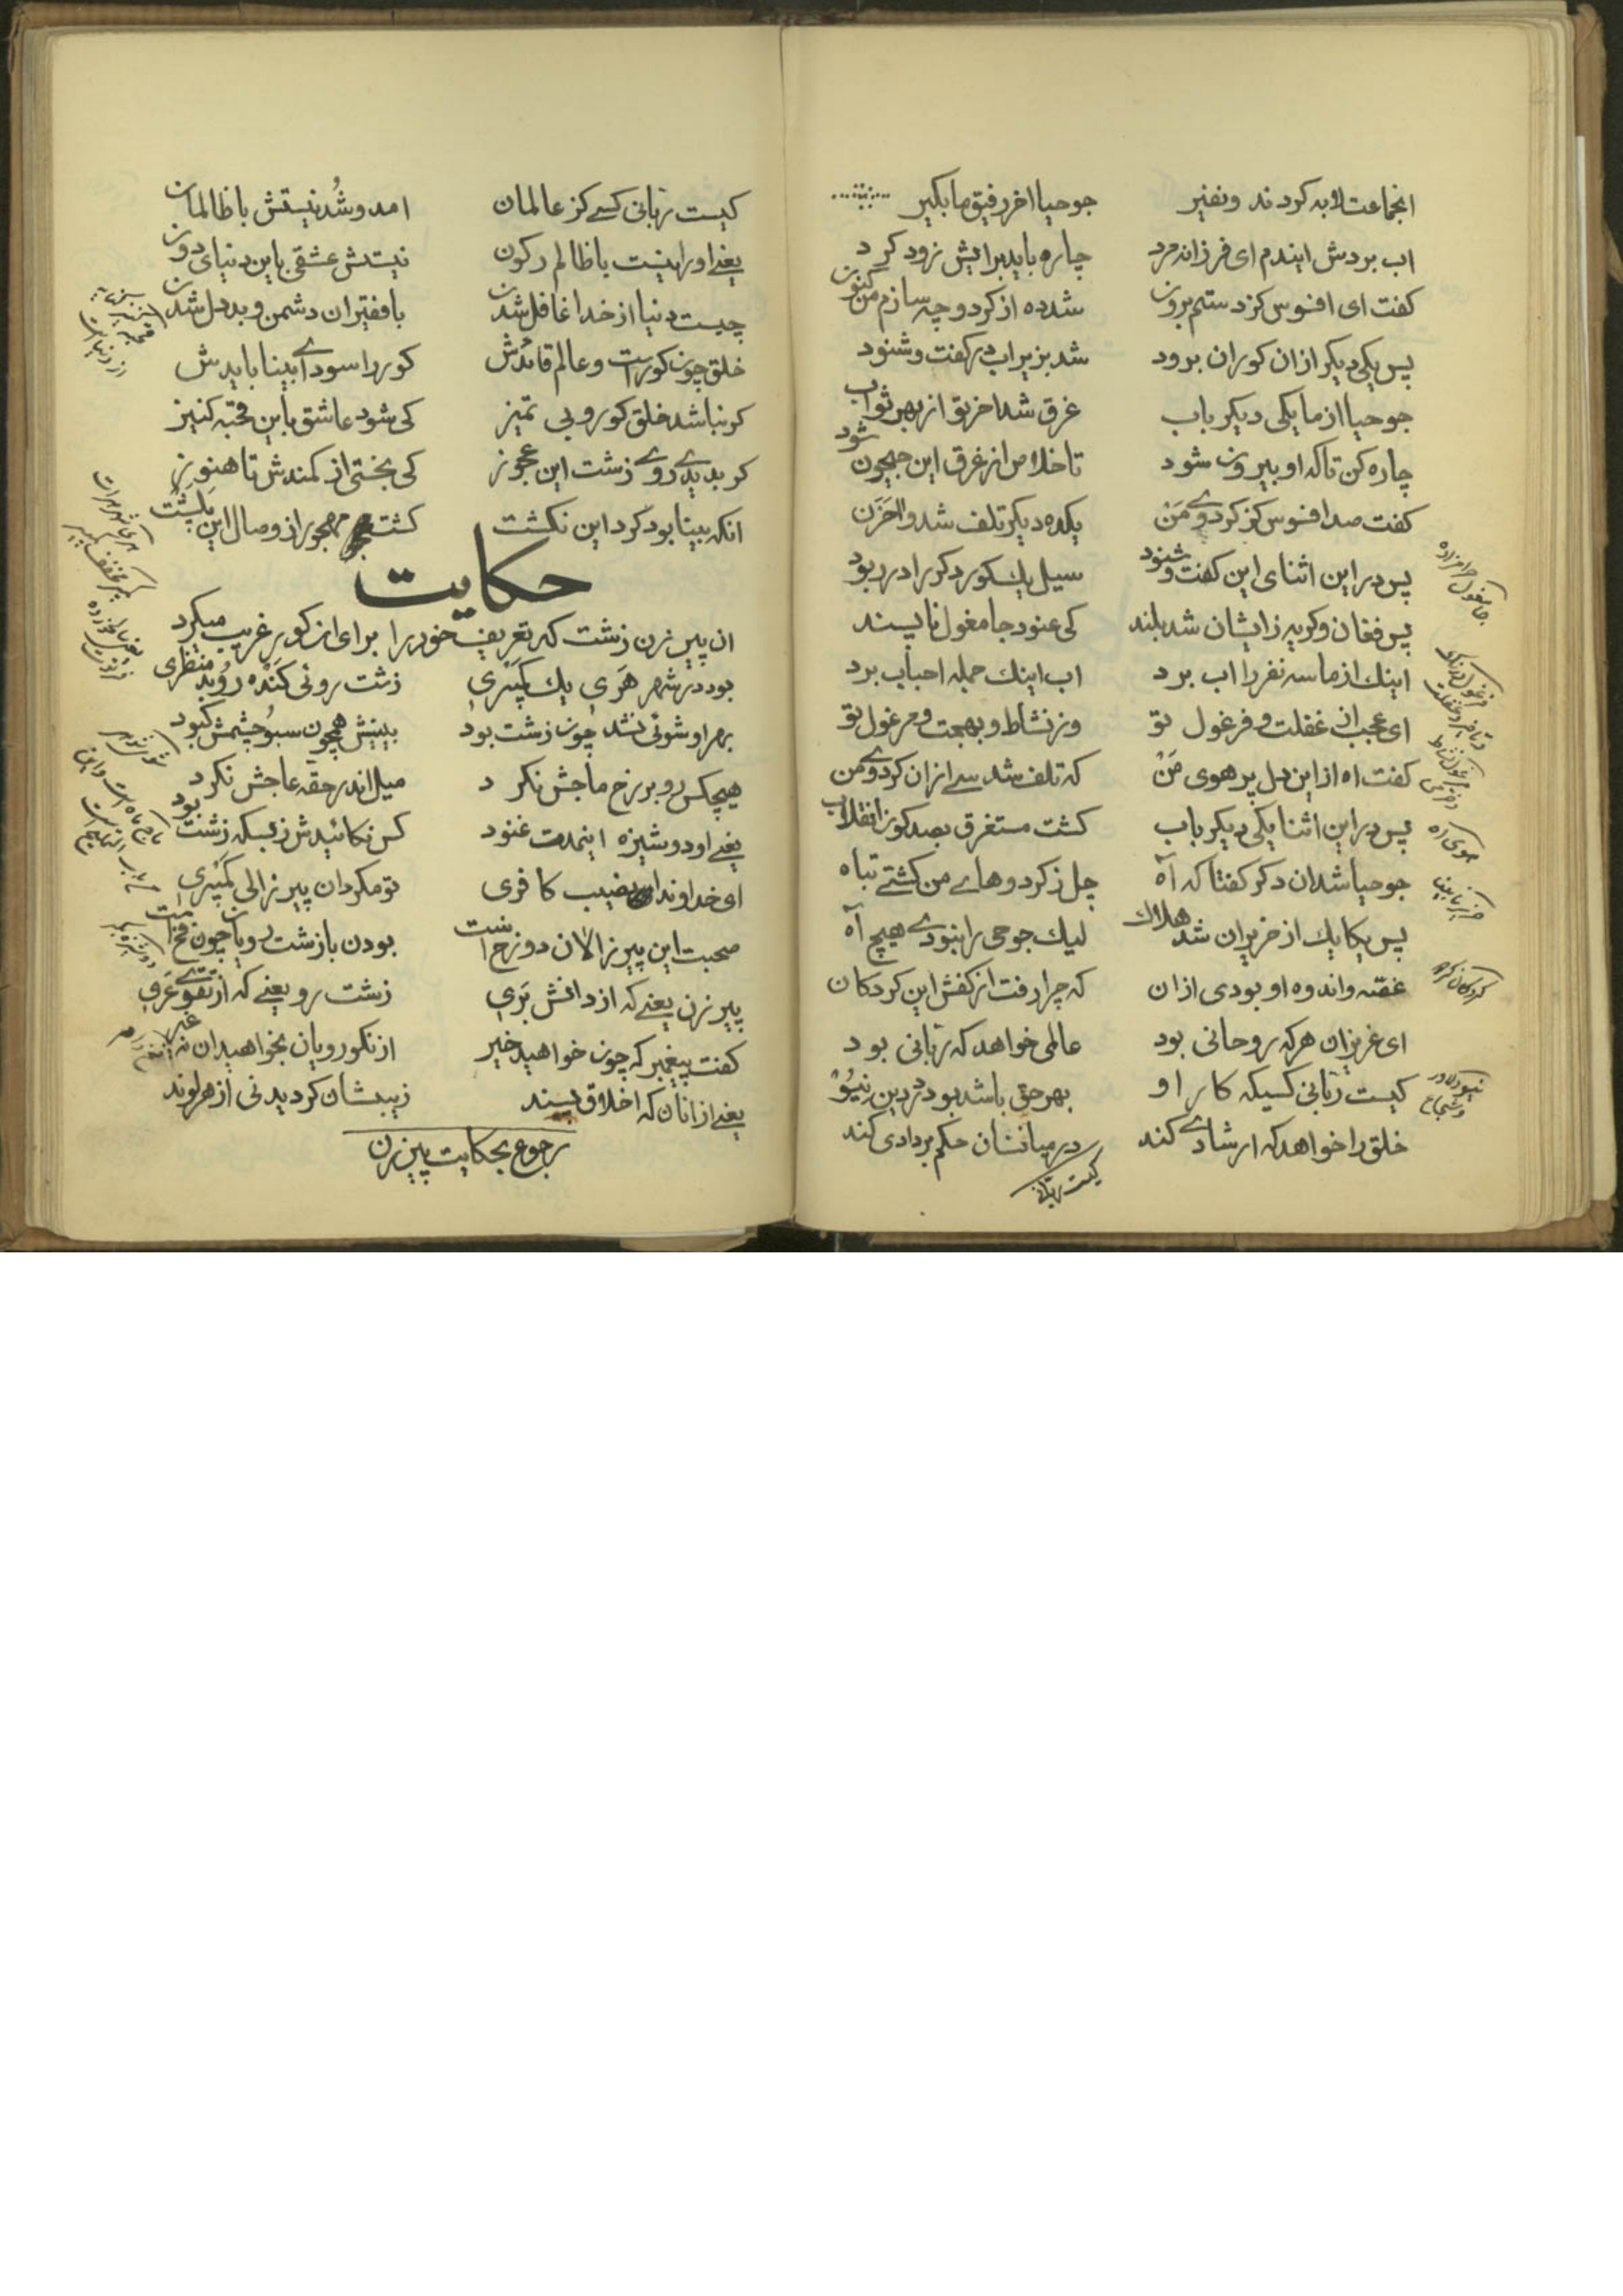 انجماعت لابه کردند ونفیر جوحیا اخر رفیق ما بکیر
اب بردش ایندم ای فرزانه مرد چاره باید برایش زود کرد
کفت ای افسوس کز دستم برون شد ده از کردو چه سازم من کنون
پس یکی دیکر ازان کوران برود شد بزیر اب در کفت وشنود
جوحیا از ما یکی دیکر باب غرق شد اخر بق از بهر ثواب
چاره کن تا که او بیرون شود تا خلاص از غرق این جیحون شود
کفت صد افسوس کز کردوی من یکده دیکر تلف شد والحزن
پس در این اثنای این کفت وشنود سیل یك کور دکر را در ربود
پس فغان وکریه زایشان شد بلند کی عنود جامغول ناپسند
اینك از ما سه نفر را اب برد اب اینك جمله احباب برد
ای عجب از غفلت و فرغول تو وز نشاط و بهجت و مرغول تو
کفت اه از این دل پر هوی من که تلف شد سی ازان کردوی من
پس در این اثنا یکی دیکر باب کشت مستغرق بصد کوز انقلاب
جوحیا شد ان دکر کفتا که آه چل ز کردوهای من کشتی تباه
پس یکایك از خریران شد هلاك لیك جوحی را نبودی هیچ آه
غصه واندوه او بودی ازان که چرا رفت از کفش این کردکان
ای عزیزان هر که روحانی بود عالمی خواهد که ربانی بود
کیست ربانی کسیکه کار او بهر حق باشد بود در دین نیو
خلق را خواهد که ارشادی کند در میانشان حکم بر دادی کند
کیست ربانی
جامغول حرامزاده
هوی اه
خریر نابینا
کردکان کردو
نیو دلاور وشجاع
کیست ربانی کسی کز عالمان امد وشد نیستش با ظالمان
یعنی او را نیست با ظالم رکون نیستش عشقی باین دنیای دون
چیست دنیا از خدا غافل شدن با فقیران دشمن وبد دل شدن
خلق چون کورست وعالم قائدش کور را سودای بینا بایدش
کر نباشد خلق کور وبی تمیز کی شود عاشق باین قحبه کنیز
کر بدیدی روی زشت این عجوز کی بختی از کمندش تا هنوز
انکه بینا بود کرد این نکشت کشت مهجور از وصال این پلشت
حکایت
ان پیر زن زشت که تعریف خود را برای ان کور غریب میکرد
بود در شهر هری یك کمپری زشت روئی کنده روبد منظری
بهر او شوئی نشد چون زشت بود بینیش همچون سبو چشمش کبود
هیچکس رو بر رخ ماجش نکرد میل اندر حقه عاجش نکرد
یعنی او دوشیزه اینمدت غنود کس نکائیدش زبسکه زشت بود
ای خداوندا نصیب کافری تو مکردان پیر زالی کمپری
صحبت این پیر زالان دوزخ است بودن با زشت رویان چون فخ است
پیر زن یعنی که از دانش بری زشت رو یعنی که از تقوی عری
کفت پیغمبر که چون خواهید خیر از نکورویان بخواهید ان نه غیر
یعنی ازانان که اخلاق پسند زیبشان کردیدنی از هر لوند
رجوع بحکایت پیر زن